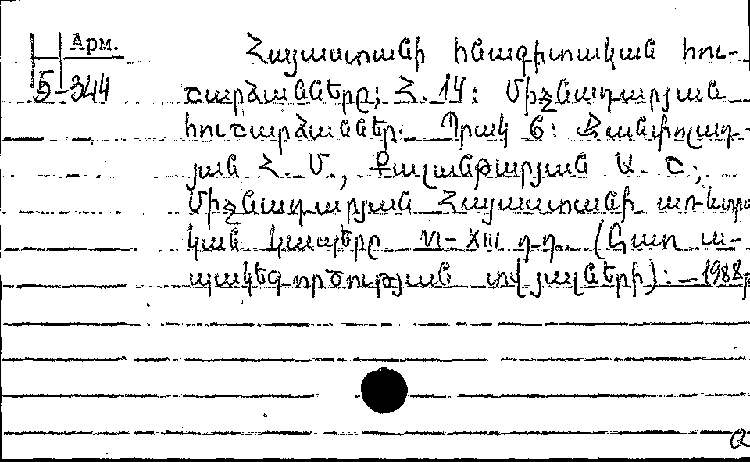 Арм. Հայաստանի հնագիտական հու-
Б-344 շարձանները; Հ. 14: Միջնադարյան
հուշարձաններ. Պրակ 6: Ջանփոլադ-
յան Հ. Մ., Քալանթարյան Ա. Ծ;
Միջնադարյան Հայաստանի առևտրա
կան կապերը VI-XIII դդ. (Հստ ա-
պակեգործության տվյալների): - 1988թ